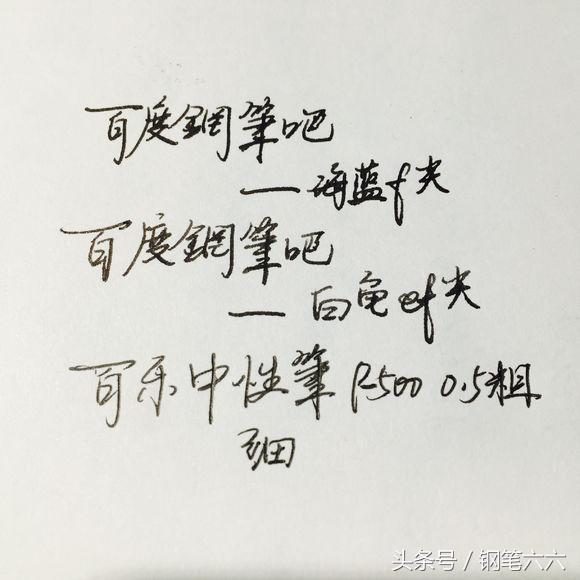 百度鋼筆吧
— 海蓝f尖
百度鋼筆吧
— 白龟ef尖
百乐中性筆 P500 0.5粗
细
头条号 / 钢笔六六